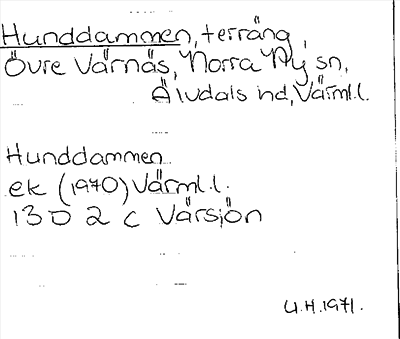 Hunddammen, terräng,
Övre Värnäs, Norra Ny sn,
Älvdals hd, Värml.l.
Hunddammen
ek (1970) Värml.l.
13 D 2 c Värsjön
U.H.1971.